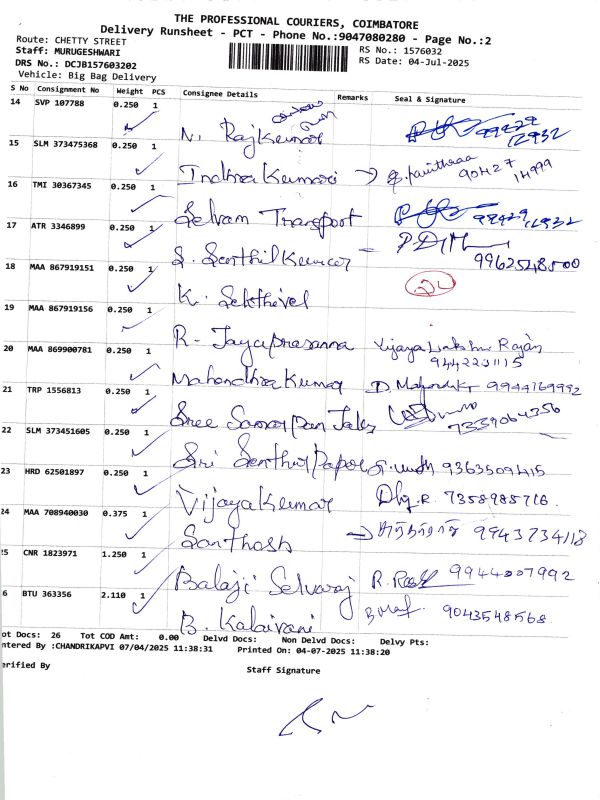 THE PROFESSIONAL COURIERS, COIMBATORE
Delivery Runsheet - PCT - Phone No.:9047080280 - Page No.:2
Route: CHETTY STREET
Staff: MURUGESHWARI
RS No.: 1576032
DRS No.: DCJB157603202
RS Date: 04-Jul-2025
Vehicle: Big Bag Delivery
S No Consignment No Weight PCS Consignee Details Remarks Seal & Signature
14 SVP 107788 0.250 1
N. Rajkumar 99429 12932
15 SLM 373475368 0.250 1
Indhra Kumari → 90427 14999
16 TMI 30367345 0.250 1
Selvam Transport 99429 12932
17 ATR 3346899 0.250 1
S. Senthil Kumar 9962548500
18 MAA 867919151 0.250 1
K. Sakthivel
19 MAA 867919156 0.250 1
R. Jayaprasanna Vijaya Lakshmi Rajan
9442231115
20 MAA 869900781 0.250 1
Mahendhra Kumar 9944769992
21 TRP 1556813 0.250 1
Sree 7339064356
22 SLM 373451605 0.250 1
Sri Senthur Papers 9363509415
23 HRD 62501897 0.250 1
Vijaya Kumar 7358985716
24 MAA 708940030 0.375 1
Santhosh → 9943734118
25 CNR 1823971 1.250 1
Balaji Selvaraj 9944007992
6 BTU 363356 2.110 1
B. Kalaivani 9043548568
ot Docs: 26 Tot COD Amt: 0.00 Delvd Docs: Non Delvd Docs: Delvy Pts:
ntered By :CHANDRIKAPVI 07/04/2025 11:38:31 Printed On: 04-07-2025 11:38:20
erified By Staff Signature